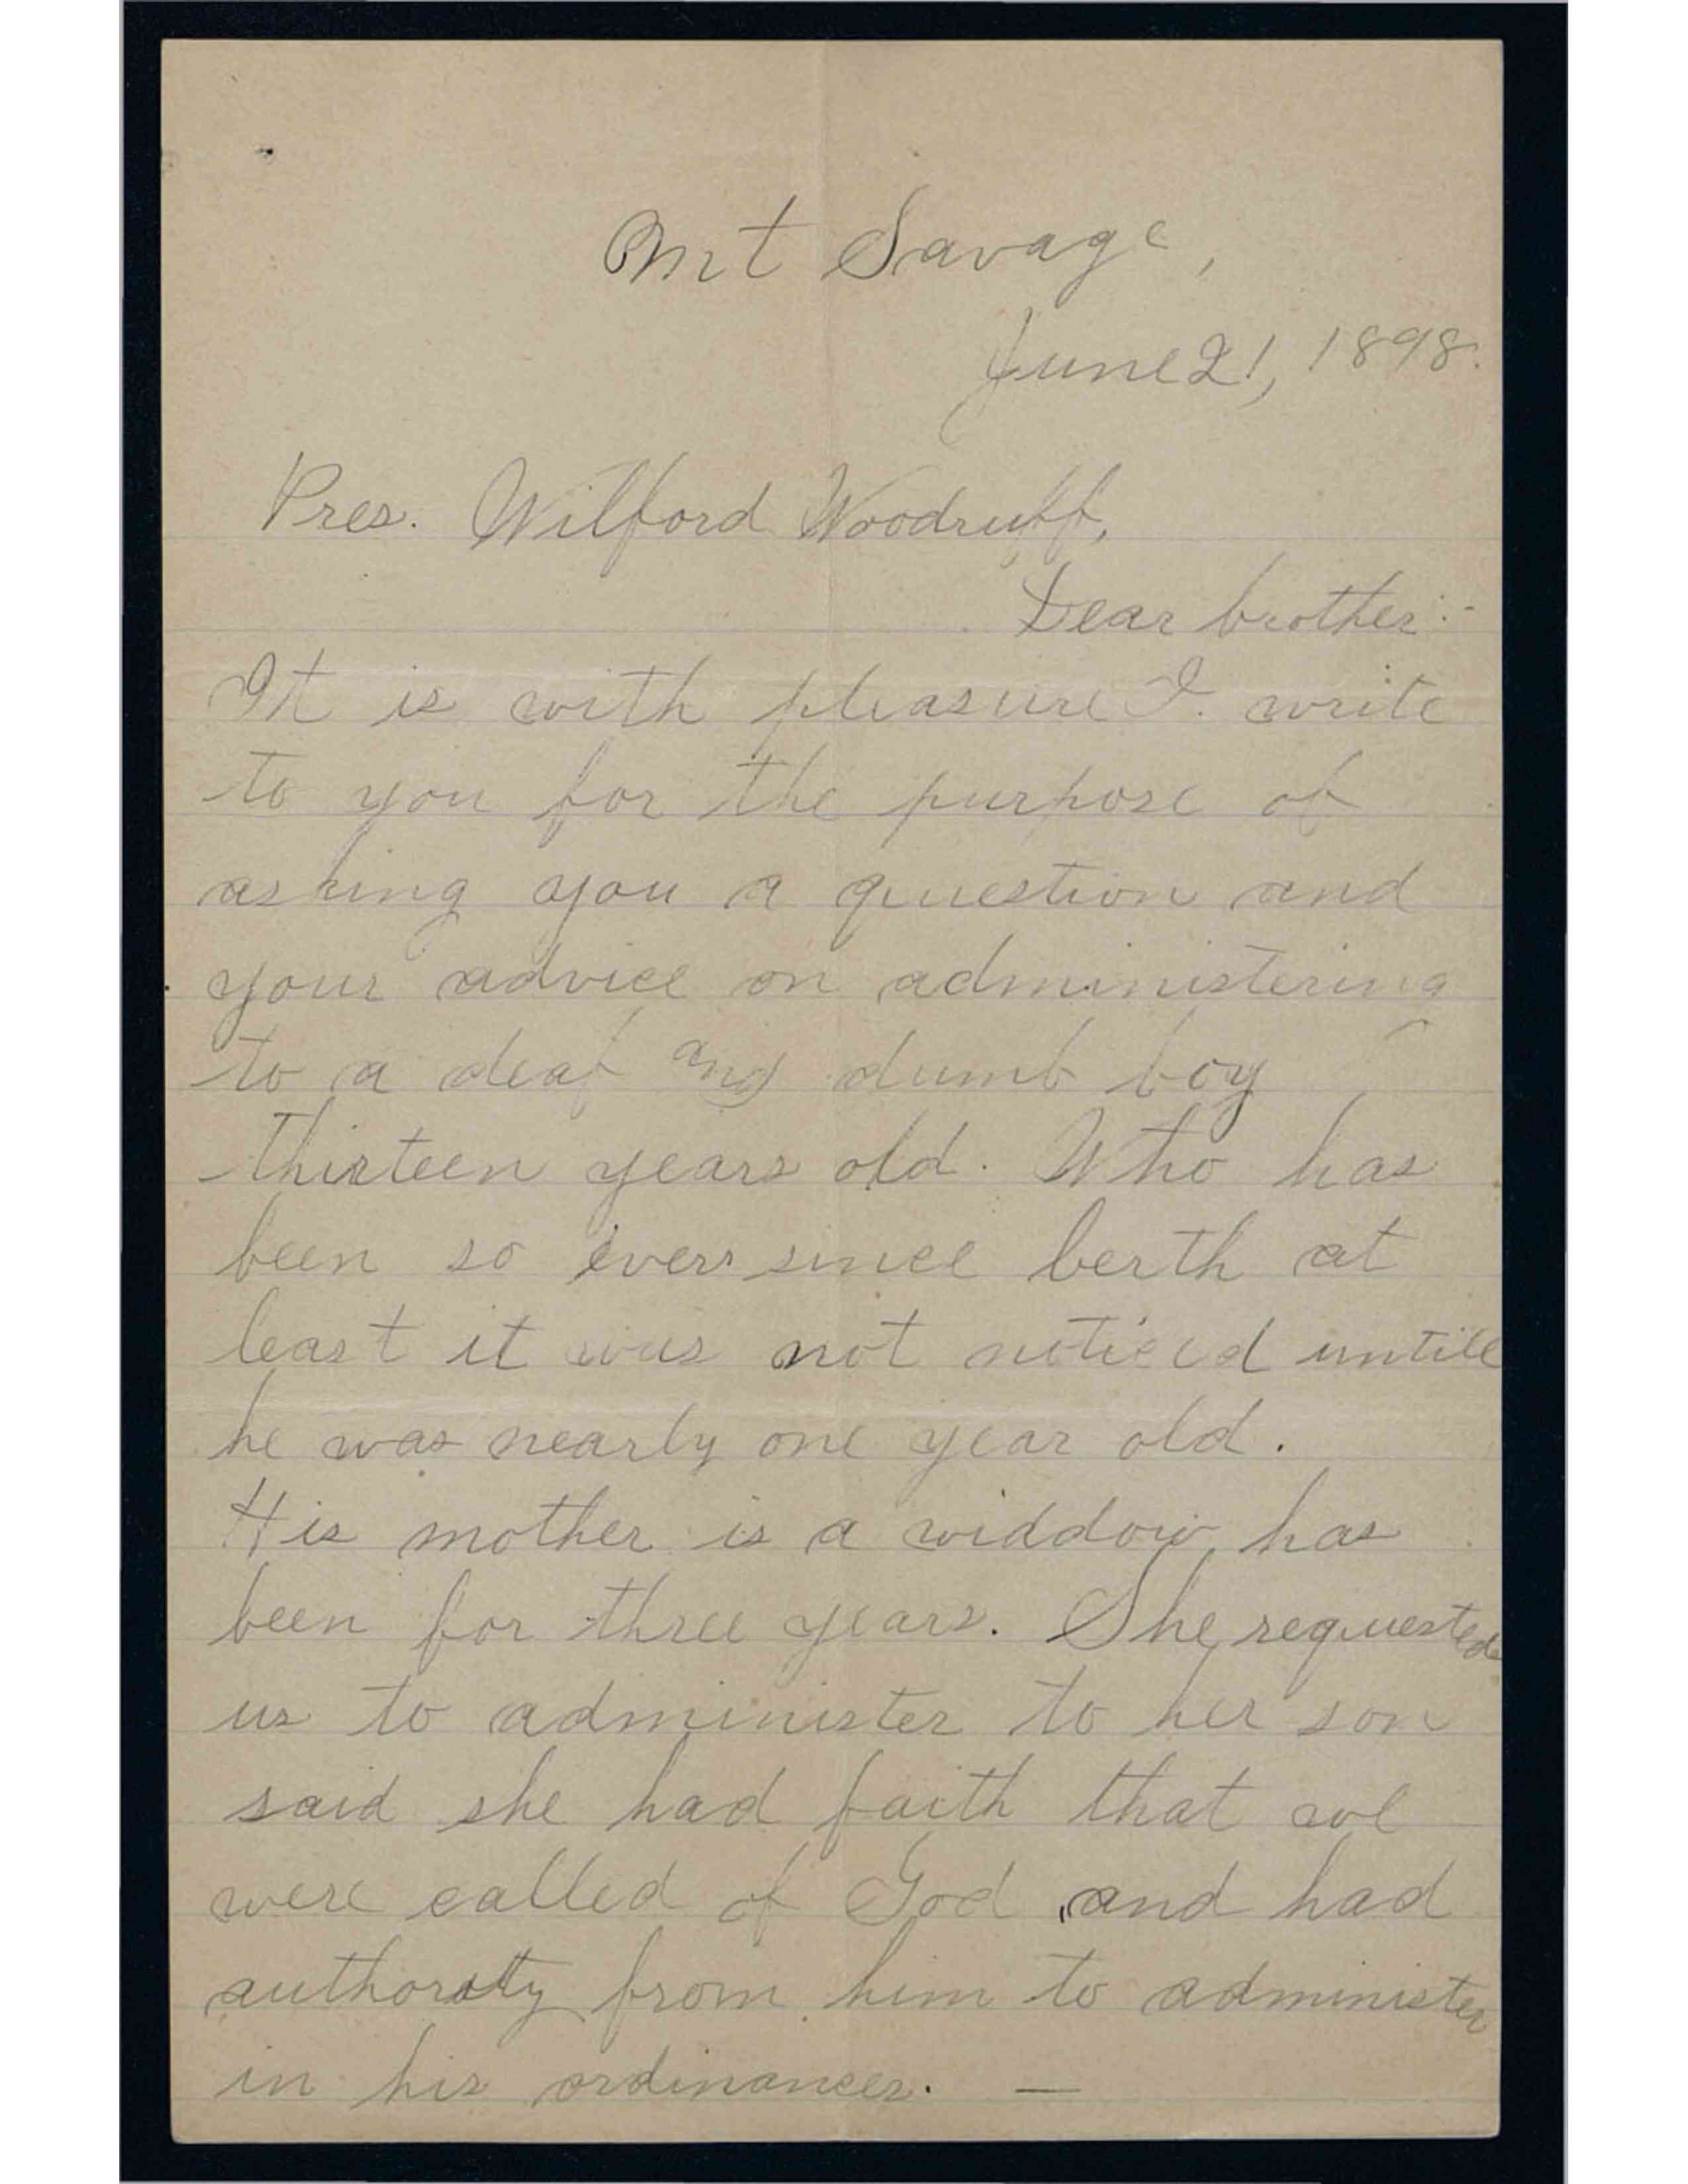 Mt Savage,
June 21, 1898.
Pres. Wilford Woodruff,
Dear brother:-
It is with pleasure I write
to you for the purpose of
asking you a question and
your advice on administering
to a deaf and dumb boy
thirteen years old. Who has
been so ever since berth at
least it was not noticed untill
he was nearly one year old.
His mother is a widdow has
been for three years. She requested
us to administer to her son
said she had faith that we
were called of God and had
authority from him to administer
in his ordinances. —